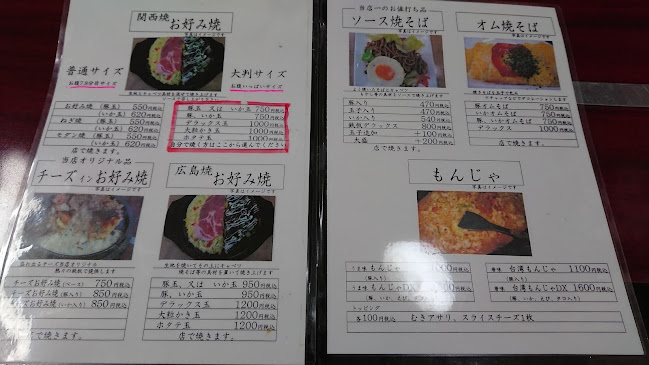 関西焼 お好み焼
写真はイメージです
普通サイズ
お腹7分目サイズ
大判サイズ
お腹いっぱいサイズ
お好み焼（豚玉）550円税込
（いか玉）620円税込
ねぎ焼（豚玉）550円税込
（いか玉）620円税込
モダン焼（豚玉）
（いか玉）
店で焼きます。
豚玉 又は いか玉 750円税込
豚、いか玉 750円税込
デラックス玉 1000円税込
大粒かき玉 1000円税込
ホタテ玉 1100円税込
自分で焼く方はここから選んでください
当店オリジナル品
チーズインお好み焼
写真はイメージです
溢れ出るチーズ当店オリジナル
熱々の鉄板で提供します
チーズお好み焼（ベース）750円税込
チーズお好み焼（豚入り）850円税込
チーズお好み焼（いか入り）850円税込
店で焼きます。
広島焼 お好み焼
写真はイメージです
豚玉、又は いか玉 950円税込
豚、いか玉 950円税込
デラックス玉 1200円税込
大粒かき玉 1200円税込
ホタテ玉 1200円税込
店で焼きます。
当店一のお値打ち品
ソース焼そば
写真はイメージです
豚入り 470円税込
玉子入り 470円税込
いか入り 540円税込
鉄板デラックス 800円税込
玉子追加 +100円税込
大盛 +200円税込
店で焼きます。
オム焼そば
写真はイメージです
豚オムそば
いかオムそば
豚、いかオムそば
デラックス 1000円税込
店で焼きます。
もんじゃ
写真はイメージです
うま味 もんじゃ
うま味 もんじゃDX
辛味 台湾もんじゃ 1100円税込
辛味 台湾もんじゃDX 1600円税込
トッピング
各100円税込 むきアサリ、スライスチーズ1枚